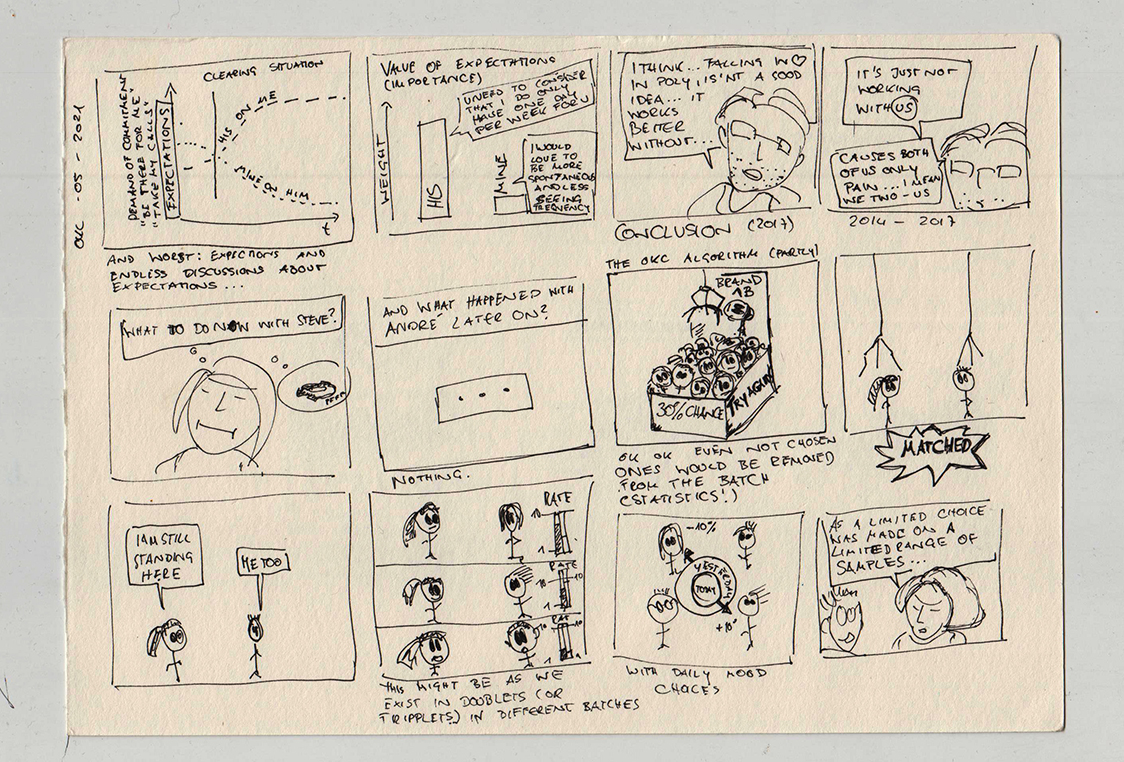 OKC -05-2021
CLEARING SITUATION
DEMAND OF COMMITMENT
"BE THERE FOR ME"
"TAKE MY CALLS"
EXPECTATIONS
HIS ON ME
MINE ON HIM
t
AND WORST: EXPECTIONS AND
ENDLESS DISCUSSIONS ABOUT
EXPECTATIONS ...
VALUE OF EXPECTATIONS
(IMPORTANCE)
WEIGHT
U NEED TO CONSIDER
THAT I DO ONLY
HAVE ONE DAY
PER WEEK FOR U
HIS
MINE
I WOULD
LOVE TO
BE MORE
SPONTANEOUS
AND LESS
SEEING
FREQUENCY
I THINK... FALLING IN
IN POLY, IS'NT A GOOD
IDEA... IT
WORKS
BETTER
WITHOUT...
CONCLUSION (2017)
IT'S JUST NOT
WORKING
WITH US
CAUSES BOTH
OF US ONLY
PAIN... I MEAN
WE TWO - US
2014 - 2017
WHAT TO DO NOW WITH STEVE?
AND WHAT HAPPENED WITH
ANDRÉ LATER ON?
...
NOTHING.
THE OKC ALGORITHM (PARTLY)
BRAND
1B
30% CHANCE
TRY AGAIN!
OK OK EVEN NOT CHOSEN
ONES WOULD BE REMOVED
FROM THE BATCH
(STATISTICS!)
MATCHED
I AM STILL
STANDING
HERE
ME TOO
RATE
10
1
RATE
10
1
10
THIS MIGHT BE AS WE
EXIST IN DOUBLETS (OR
TRIPPLETS) IN DIFFERENT BATCHES
-10%
YESTERDAY
TODAY
+10°
WITH DAILY MOOD
CHOICES
AS A LIMITED CHOICE
WAS MADE ON A
LIMITED RANGE OF
SAMPLES...